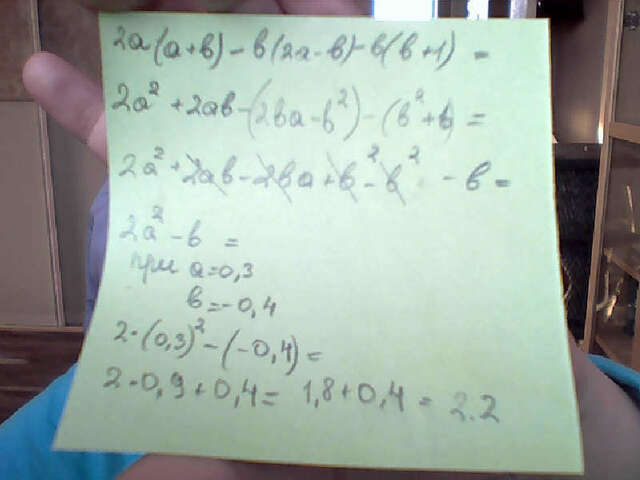 2a(a+b)-b(2a-b)-b(b+1)=
2a²+2ab-(2ba-b²)-(b²+b)=
2a²+2ab-2ba+b²-b² -b=
2a²-b=
при a=0,3
b=-0,4
2·(0,3)²-(-0,4)=
2·0,9+0,4=1,8+0,4=2.2